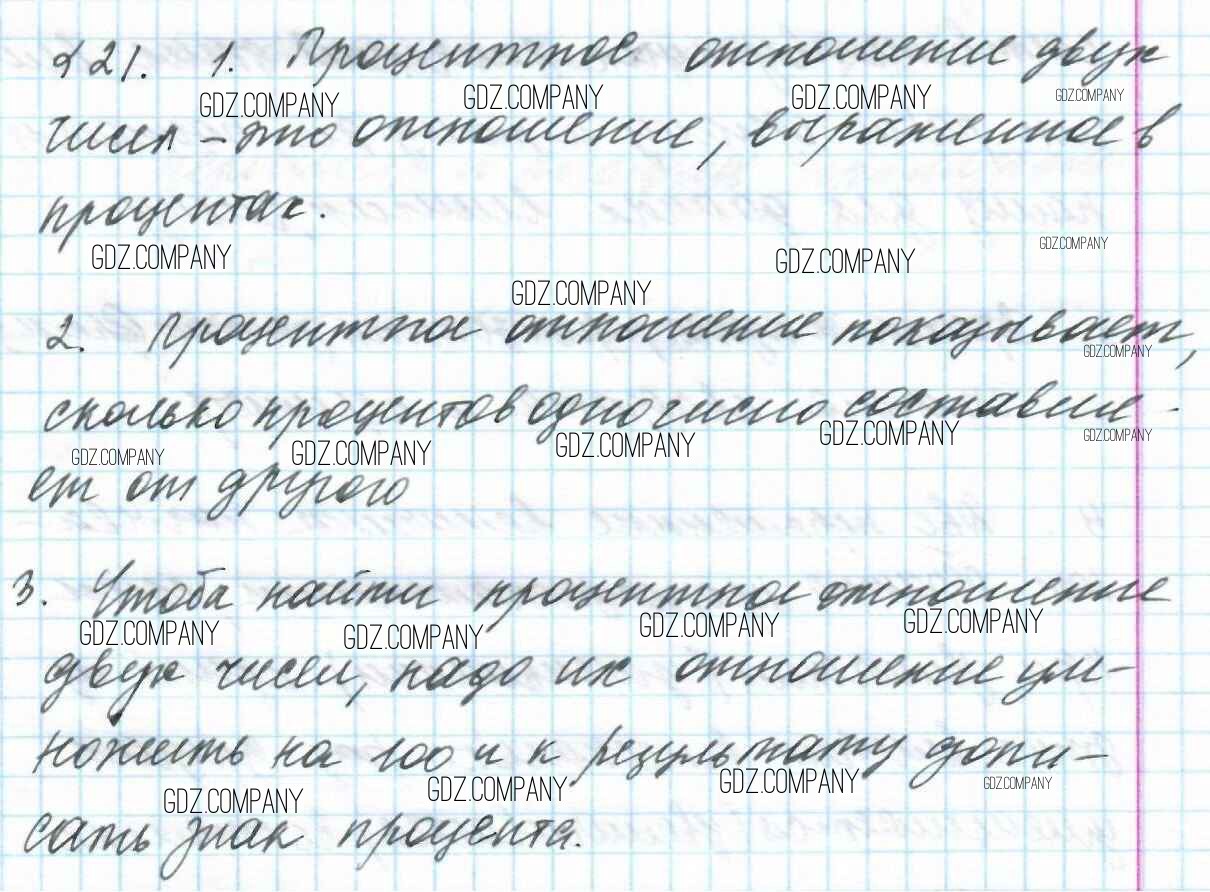 §21. 1. Процентное отношение двух
GDZ.COMPANY GDZ.COMPANY GDZ.COMPANY GDZ.COMPANY
чисел – это отношение, выраженное в
процентах.
GDZ.COMPANY GDZ.COMPANY GDZ.COMPANY
GDZ.COMPANY
2. Процентное отношение показывает,
GDZ.COMPANY
сколько процентов одно число составля-
GDZ.COMPANY GDZ.COMPANY GDZ.COMPANY GDZ.COMPANY GDZ.COMPANY
ет от другого
3. Чтоба найти процентное отношение
GDZ.COMPANY GDZ.COMPANY GDZ.COMPANY GDZ.COMPANY
двух чисел, надо их отношение ум-
ножить на 100 и к результату допи-
GDZ.COMPANY GDZ.COMPANY GDZ.COMPANY GDZ.COMPANY
сать знак процента.